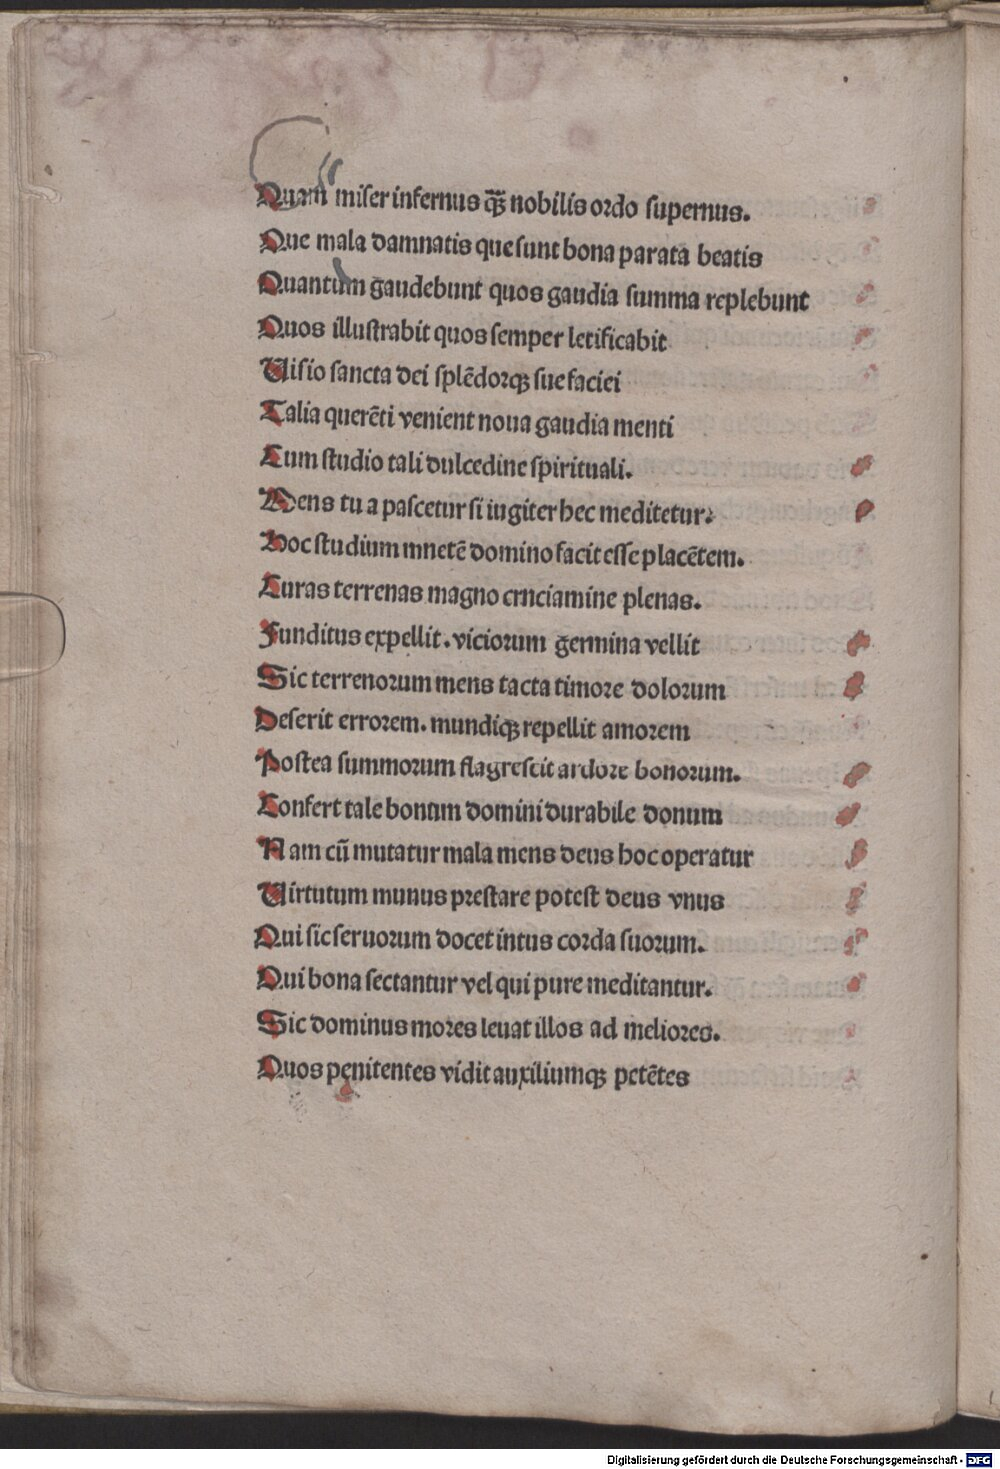 Quam miser infernus qȝ̃ nobilis ordo supernus.
Que mala damnatis que sunt bona parata beatis
Quantum gaudebunt quos gaudia summa replebunt
Quos illustrabit quos semper letificabit
Uisio sancta dei splēdorqȝ sue faciei
Talia querēti venient noua gaudia menti
Cum studio tali dulcedine spirituali.
Mens tu a pascetur si iugiter hec meditetur.
Hoc studium mnetē domino facit esse placētem.
Curas terrenas magno crnciamine plenas.
Funditus expellit. viciorum germina vellit
Sic terrenorum mens tacta timore dolorum
Deserit errorem. mundiqȝ repellit amorem
Postea summorum flagrescit ardore bonorum.
Confert tale bonum domini durabile donum
Nam cū mutatur mala mens deus hoc operatur
Uirtutum munus prestare potest deus vnus
Qui sic seruorum docet intus corda suorum.
Qui bona sectantur vel qui pure meditantur.
Sic dominus mores leuat illos ad meliores.
Quos penitentes vidit auxiliumqȝ petētes
Digitalisierung gefördert durch die Deutsche Forschungsgemeinschaft - DFG